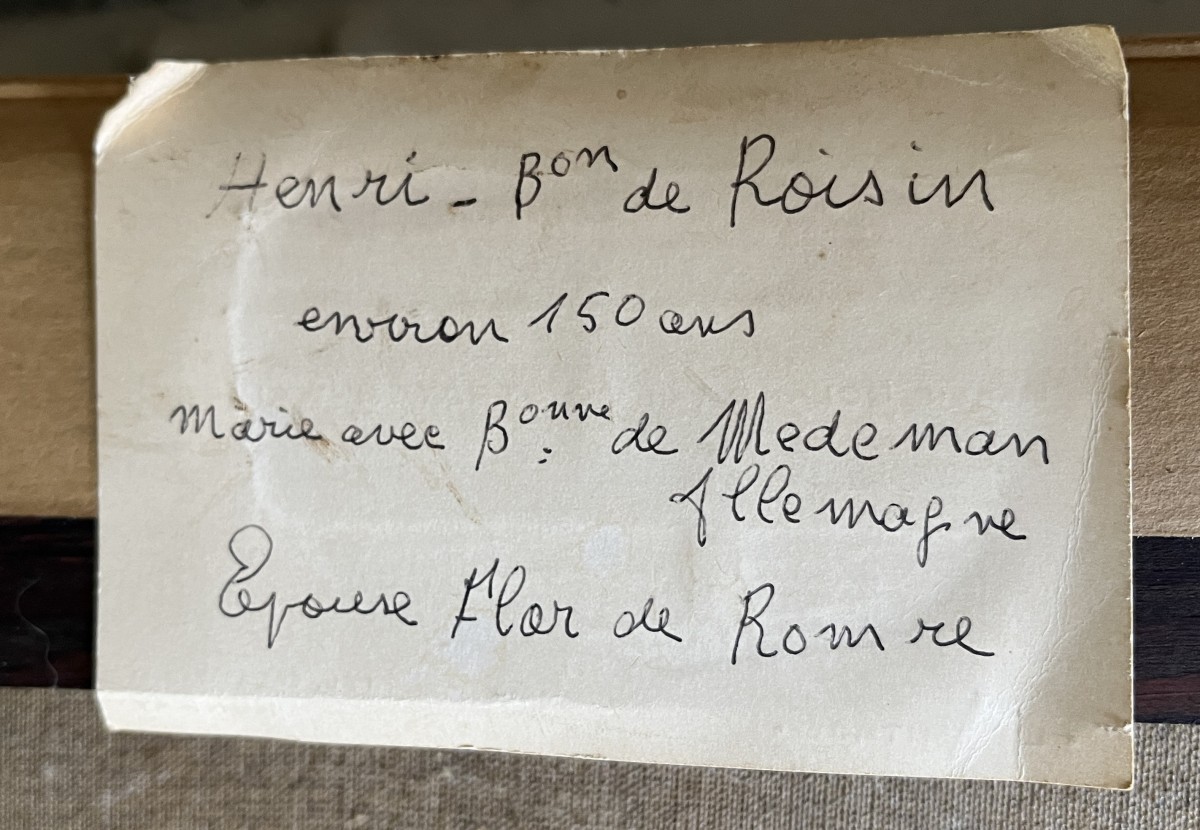 Henri - Bon de Roisin
environ 150 ans
Marie avec Bonne de Medeman
Allemagne
Epouse Flor de Romre